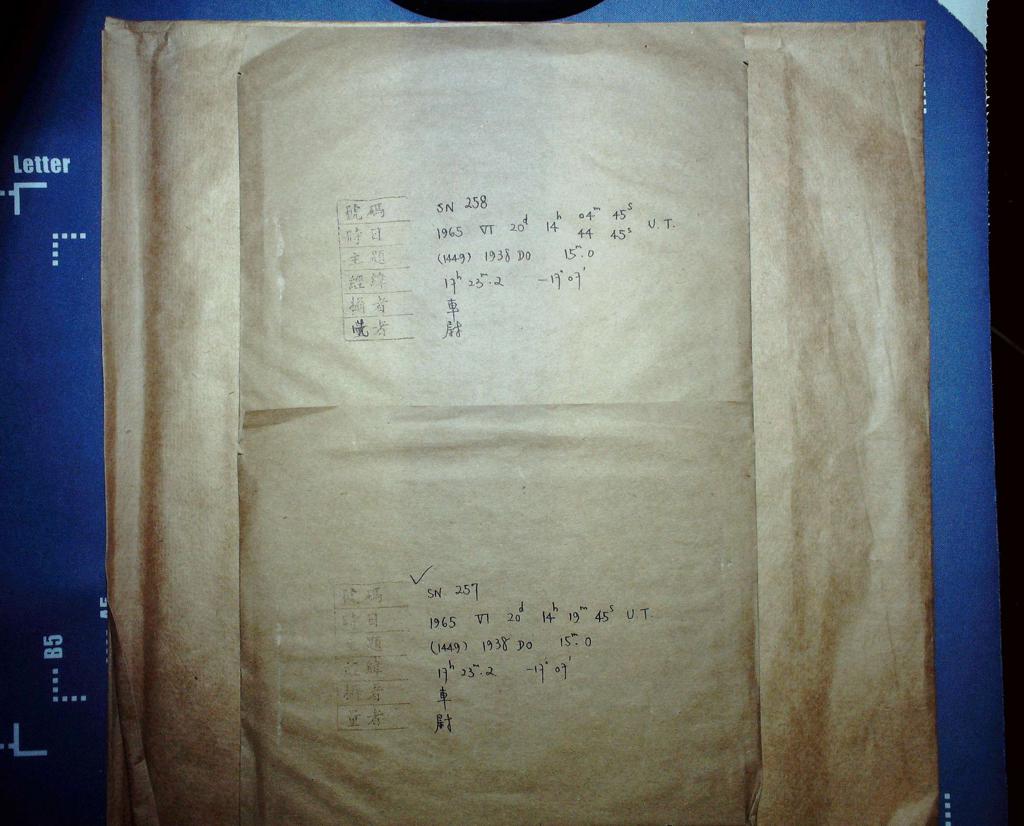 Letter
號碼 SN 258
時日 1965 VI 20d 14h 04m 45s U.T.
44 45s
主題 (1449) 1938 DO 15m.0
經緯 17h 23m.2 -17° 07'
攝者 車
覽者 尉
✓
號碼 SN 257
時日 1965 VI 20d 14h 19m 45s U.T.
題 (1449) 1938 DO 15m.0
經緯 17h 23m.2 -17° 07'
攝者 車
量者 尉
B5
A5